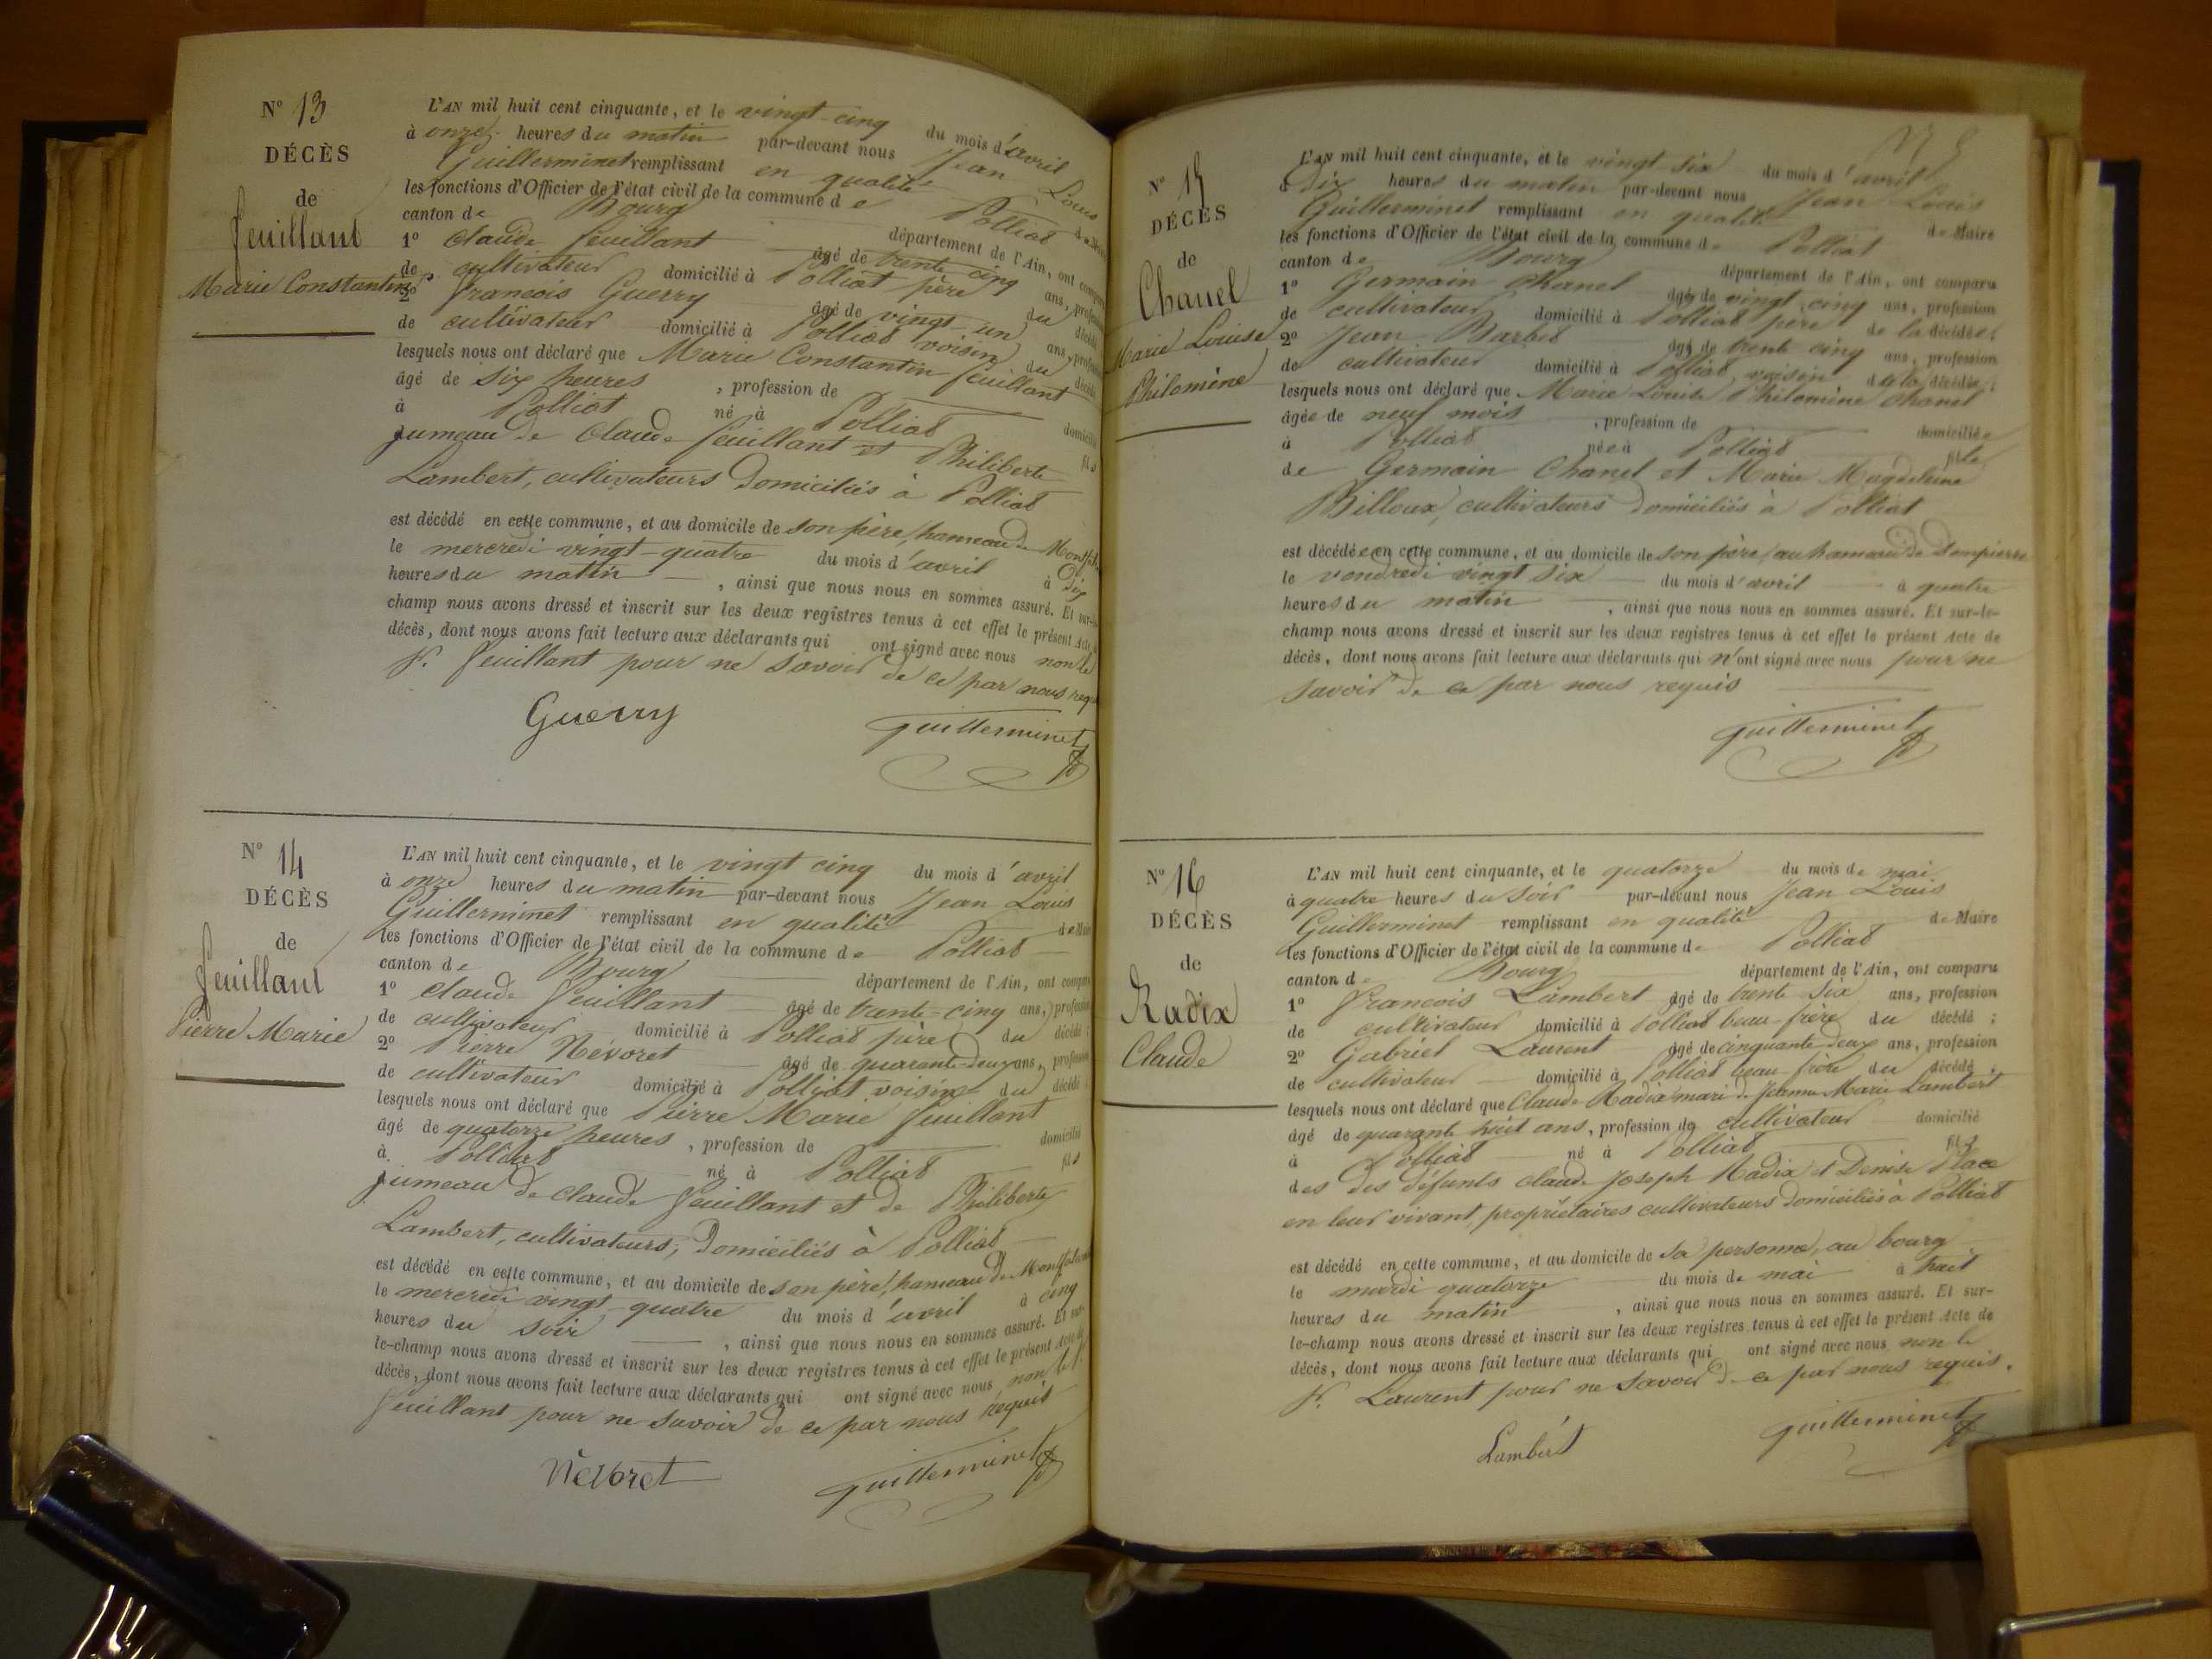 N° 13
DÉCÈS
de
Feuillant
Marie Constantin
L'AN mil huit cent cinquante, et le vingt-cinq du mois d'avril
à onze heures du matin par-devant nous Jean Louis
Guillerminet remplissant en qualité de Maire
les fonctions d'Officier de l'état civil de la commune de Polliat
canton de Bourg département de l'Ain, ont comparu
1° Claude Feuillant âgé de trente cinq ans, profession
de cultivateur domicilié à Polliat père du décédé
2° François Guerry âgé de vingt-un ans, profession
de cultivateur domicilié à Polliat voisin du décédé
lesquels nous ont déclaré que Marie Constantin Feuillant
âgé de six heures , profession de domicilié
à Polliat né à Polliat fils
jumeau de Claude Feuillant et Philiberte
Lambert, cultivateurs domiciliés à Polliat
est décédé en cette commune, et au domicile de son père, hameau de
le mercredi vingt-quatre du mois d'avril à dix
heures du matin , ainsi que nous nous en sommes assuré. Et sur-le-
champ nous avons dressé et inscrit sur les deux registres tenus à cet effet le présent Acte de
décès, dont nous avons fait lecture aux déclarants qui ont signé avec nous non le
Sr. Feuillant pour ne savoir de ce par nous requis
Guerry
guillerminet
N° 14
DÉCÈS
de
Feuillant
Pierre Marie
L'AN mil huit cent cinquante, et le vingt cinq du mois d'avril
à onze heures du matin par-devant nous Jean Louis
Guillerminet remplissant en qualité de Maire
les fonctions d'Officier de l'état civil de la commune de Polliat
canton de Bourg département de l'Ain, ont comparu
1° Claude Feuillant âgé de trente-cinq ans, profession
de cultivateur domicilié à Polliat père du décédé ;
2° Pierre Névoret âgé de quarante-deux ans, profession
de cultivateur domicilié à Polliat voisin du décédé
lesquels nous ont déclaré que Pierre Marie Feuillant
âgé de quatorze heures , profession de domicilié
à Polliat né à Polliat fils
jumeau de Claude Feuillant et de Philiberte
Lambert, cultivateurs, domiciliés à Polliat
est décédé en cette commune, et au domicile de son père, hameau de
le mercredi vingt-quatre du mois d'avril à cinq
heures du soir , ainsi que nous nous en sommes assuré. Et sur-
le-champ nous avons dressé et inscrit sur les deux registres tenus à cet effet le présent Acte de
décès, dont nous avons fait lecture aux déclarants qui ont signé avec nous non le Sr.
Feuillant pour ne savoir de ce par nous requis
Névoret
guillerminet
N° 15
DÉCÈS
de
Chanel
Marie Louise
Philomène
L'AN mil huit cent cinquante, et le vingt-six du mois d'avril
à dix heures du matin par-devant nous Jean Louis
Guillerminet remplissant en qualité de Maire
les fonctions d'Officier de l'état civil de la commune de Polliat
canton de Bourg département de l'Ain, ont comparu
1° Germain Chanel âgé de vingt cinq ans, profession
de cultivateur domicilié à Polliat père de la décédée ;
2° Jean Barbet âgé de trente cinq ans, profession
de cultivateur domicilié à Polliat voisin de la décédée ;
lesquels nous ont déclaré que Marie Louise Philomène Chanel
âgée de neuf mois , profession de domiciliée
à Polliat née à Polliat fille
de Germain Chanel et Marie Magdeleine
Billoux, cultivateurs domiciliés à Polliat
est décédée en cette commune, et au domicile de son père, au hameau de Dompierre
le vendredi vingt six du mois d'avril à quatre
heures du matin , ainsi que nous nous en sommes assuré. Et sur-le-
champ nous avons dressé et inscrit sur les deux registres tenus à cet effet le présent Acte de
décès, dont nous avons fait lecture aux déclarants qui n'ont signé avec nous pour ne
savoir de ce par nous requis
guillerminet
N° 16
DÉCÈS
de
Radix
Claude
L'AN mil huit cent cinquante, et le quatorze du mois de mai
à quatre heures du soir par-devant nous Jean Louis
Guillerminet remplissant en qualité de Maire
les fonctions d'Officier de l'état civil de la commune de Polliat
canton de Bourg département de l'Ain, ont comparu
1° François Lambert âgé de trente six ans, profession
de cultivateur domicilié à Polliat beau-frère du décédé ;
2° Gabriel Laurent âgé de cinquante deux ans, profession
de cultivateur domicilié à Polliat beau-frère du décédé ;
lesquels nous ont déclaré que Claude Radix mari de Jeanne Marie Lambert
âgé de quarante huit ans, profession de cultivateur domicilié
à Polliat né à Polliat fils
des des défunts Claude Joseph Radix et Denise Place
en leur vivant, propriétaires cultivateurs domiciliés à Polliat
est décédé en cette commune, et au domicile de sa personne, au bourg
le mardi quatorze du mois de mai à huit
heures du matin , ainsi que nous nous en sommes assuré. Et sur-
le-champ nous avons dressé et inscrit sur les deux registres tenus à cet effet le présent Acte de
décès, dont nous avons fait lecture aux déclarants qui ont signé avec nous non le
Sr. Laurent pour ne savoir de ce par nous requis.
Lambert
guillerminet